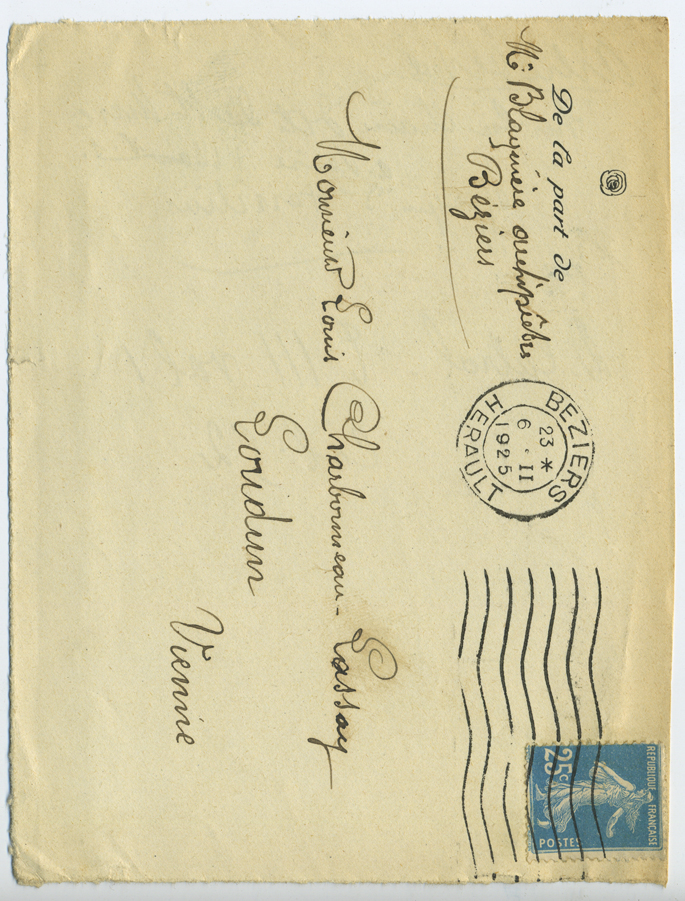 De la part de
Mr Blaquière archiprêtre
Béziers
BEZIERS
23 *
6 · II
1925
HERAULT
REPUBLIQUE FRANCAISE
25c
POSTES
Monsieur Louis Charbonneau-Lassay
Loudun
Vienne